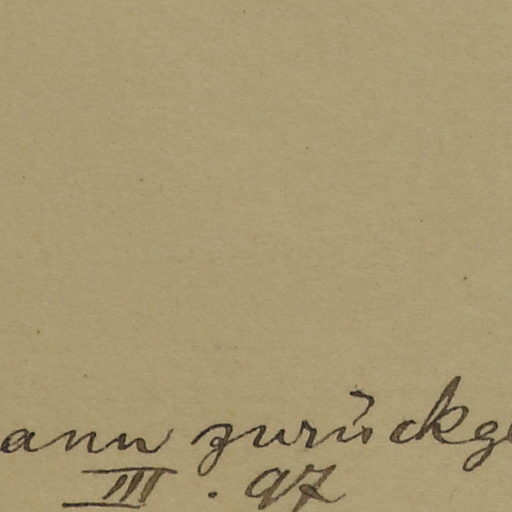 ann zurückge
III. 97